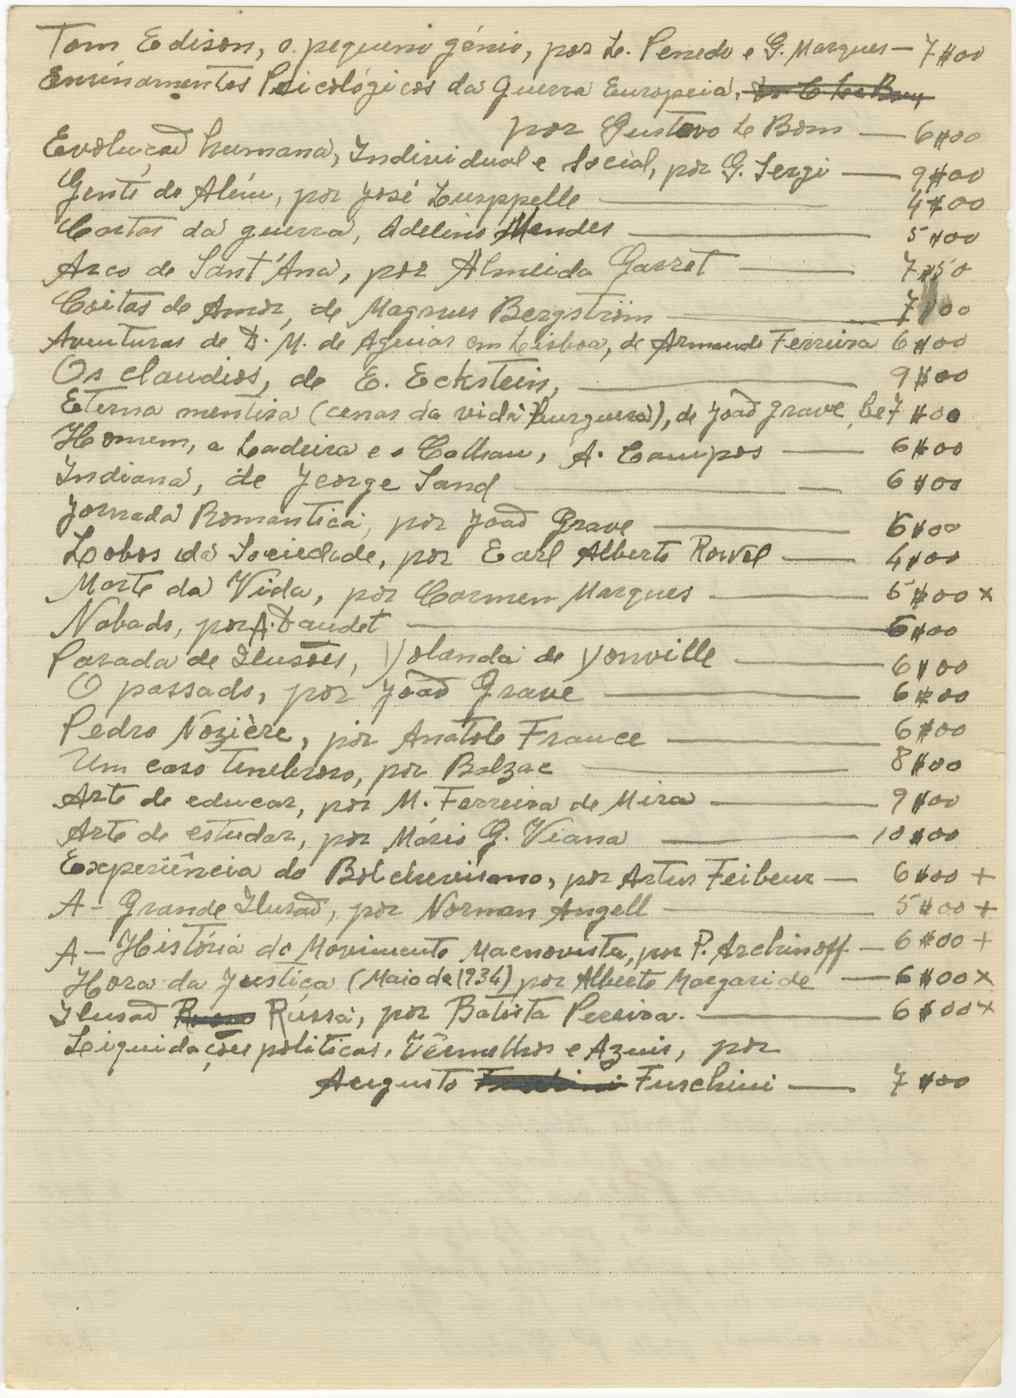 Tom Edison, o pequeno génio, por L. Penedo e G. Marques — 7$00
Ensinamentos Psicológicos da Guerra Europeia,
por Gustavo Le Bom — 6$00
Evolução humana, Individual e Social, por G. Sergi — 9$00
Gente do Além, por José Lurppelle — 4$00
Cartas da guerra, Adelino Mendes — 5$00
Arco de Sant'Ana, por Almeida Garret — 7$50
Coitas de Amor, de Magnus Bergström — 7$00
Aventuras de D. M. de Aguiar em Lisboa, de Armando Ferreira 6$00
Os claudios, de E. Eckstein, — 9$00
Eterna mentira (cenas da vida burguesa), de João Grave, 7$00
Homem, a Ladeira e o Calhau, A. Campos — 6$00
Indiana, de Jeorge Sand — 6$00
Jornada Romantica, por João Grave — 6$00
Lobos da Sociedade, por Earl Alberto Rowel — 4$00
Morte da Vida, por Carmen Marques — 5$00 x
Nababo, por A. Daudet — 6$00
Parada de Ilusões, Yolanda de Yonville — 6$00
O passado, por João Grave — 6$00
Pedro Nozière, por Anatole France — 6$00
Um caso tenebroso, por Balzac — 8$00
Arte de educar, por M. Ferreira de Mira — 9$00
Arte de estudar, por Mário G. Viana — 10$00
Experiência do Bolchevismo, por Artur Feibeur — 6$00 +
A — Grande Ilusão, por Norman Angell — 5$00 +
A — História do Movimento Macnovista, por P. Archinoff — 6$00 +
Hora da Justiça (Maio de 1934) por Alberto Margaride — 6$00 x
Ilusão Rússa, por Batista Pereira. — 6$00 x
Liquidações politicas, Vermelhos e Azuis, por
Augusto Fuschini — 7$00